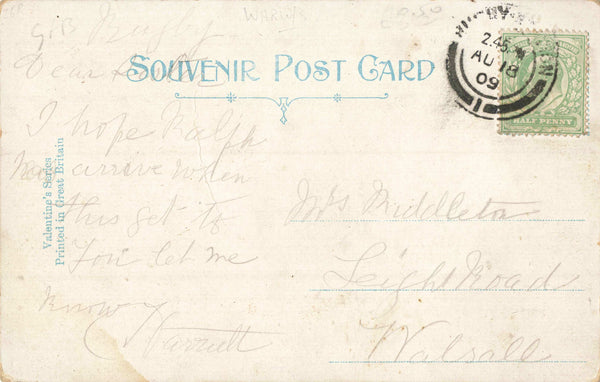 WARWK
G.B Rugby
SOUVENIR POST CARD
Dear
I hope Ralph
has arrive when
this get to
You let me
know
Harriett
Valentine's Series
Printed in Great Britain
RUGBY
2.45
AU 18
09
1
HALF PENNY
Mrs Middleton
Leigh Road
Walsall